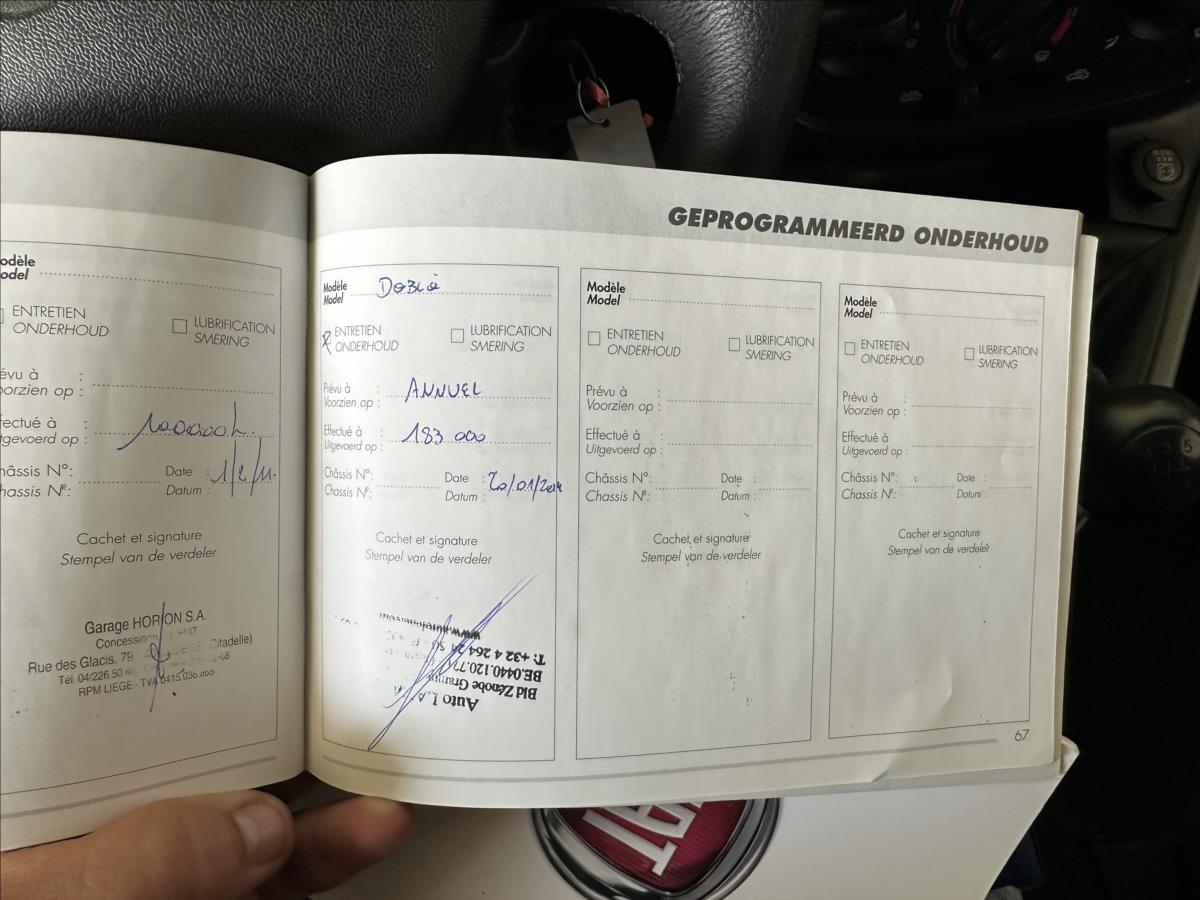 GEPROGRAMMEERD ONDERHOUD
odèle
odel
ENTRETIEN
ONDERHOUD
LUBRIFICATION
SMERING
évu à :
orzien op :
fectué à :
tgevoerd op :
hâssis N°:
hassis N°:
Date : 1/2/11.
Datum :
Cachet et signature
Stempel van de verdeler
Garage HORION S.A.
Rue des Glacis, 79 Citadelle)
Tel. 04/226.50
RPM LIEGE - TVA
Modèle
Model DOBLò
ENTRETIEN
ONDERHOUD
LUBRIFICATION
SMERING
Prévu à :
Voorzien op : ANNUEL
Effectué à :
Uitgevoerd op : 183 000
Châssis N°:
Chassis N°:
Date : 20/01/2014
Datum :
Cachet et signature
Stempel van de verdeler
Auto
Bld Zénobe
BE.0440.120.7
T: +32 4 264
Modèle
Model
ENTRETIEN
ONDERHOUD
LUBRIFICATION
SMERING
Prévu à :
Voorzien op :
Effectué à :
Uitgevoerd op :
Châssis N°:
Chassis N°:
Date :
Datum :
Cachet et signature
Stempel van de verdeler
Modèle
Model
ENTRETIEN
ONDERHOUD
LUBRIFICATION
SMERING
Prévu à :
Voorzien op :
Effectué à :
Uitgevoerd op :
Châssis N°: :
Chassis N°:
Date :
Datum :
Cachet et signature
Stempel van de verdeler
67
FIAT
3 5